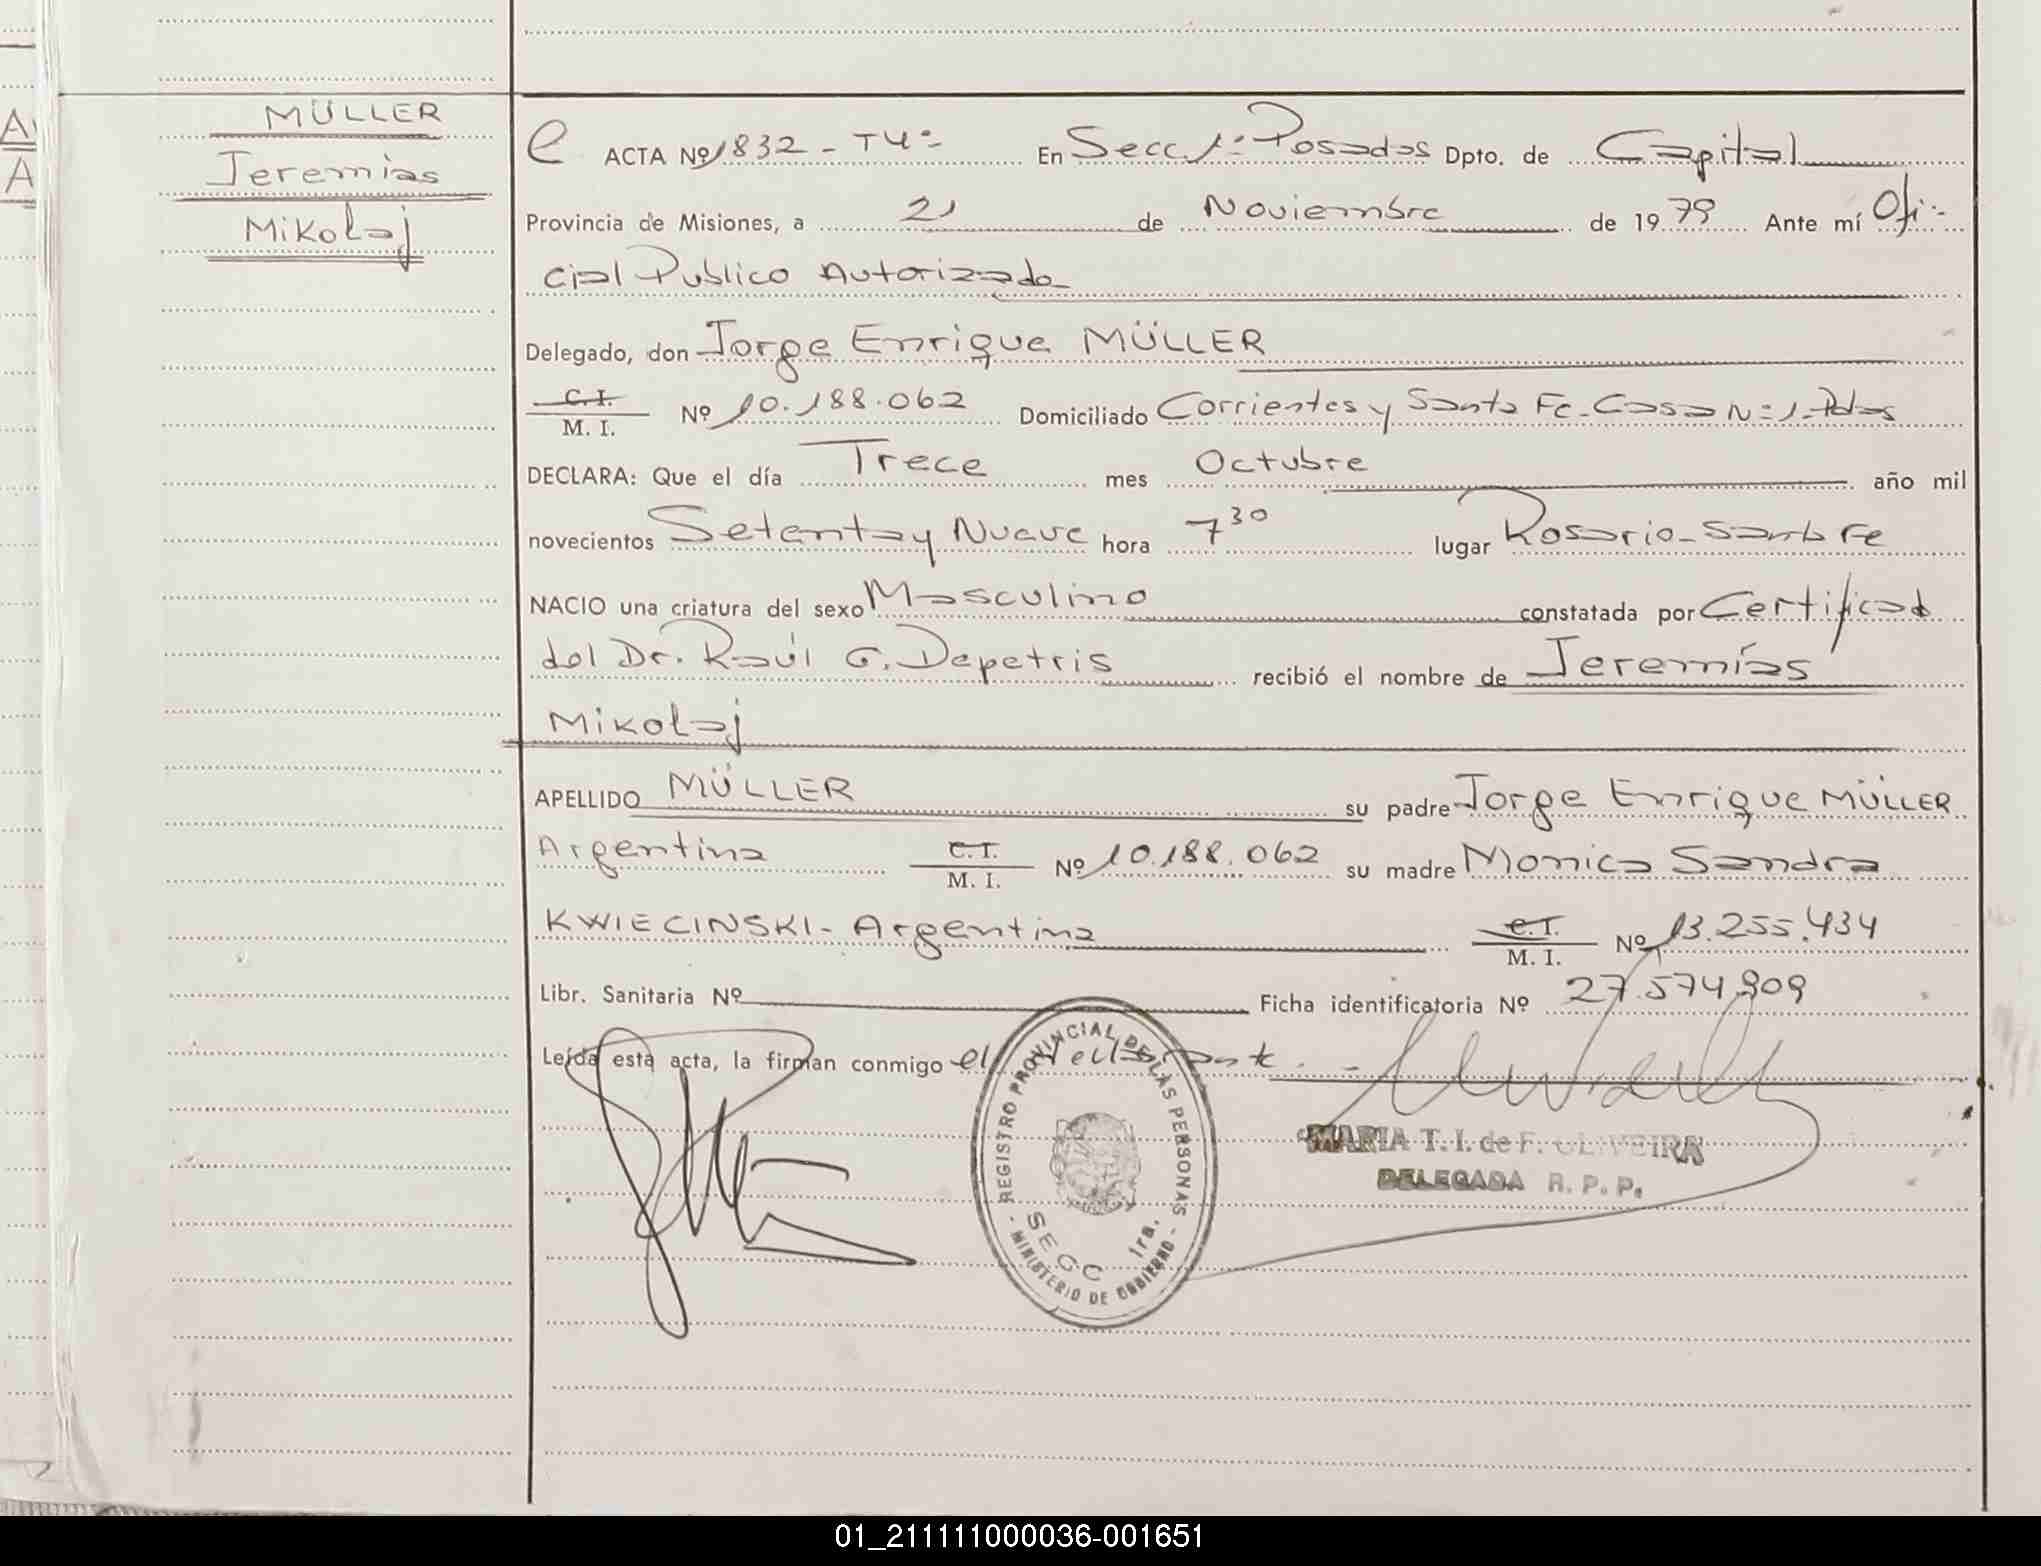 MÜLLER
Jeremias
Mikolaj
e ACTA Nº 1832 - T4º- En Secc. 1º Posadas Dpto. de Capital
Provincia de Misiones, a 21 de Noviembre de 1979 Ante mí Ofi-
cial Publico Autorizado
Delegado, don Jorge Enrique MÜLLER
C. I.
M. I. Nº 10.188.062 Domiciliado Corrientes y Santa Fe - Casa Nº 1 - Pdas
DECLARA: Que el día Trece mes Octubre año mil
novecientos Setenta y Nueve hora 7 30 lugar Rosario - Santa Fe
NACIO una criatura del sexo Masculino constatada por Certificado
del Dr. Raúl G. Depetris recibió el nombre de Jeremías
Mikolaj
APELLIDO MÜLLER su padre Jorge Enrique MÜLLER
Argentina C. I. M. I. Nº 10.188.062 su madre Monica Sandra
KWIECINSKI - Argentina C. I. M. I. Nº 13.255.434
Libr. Sanitaria Nº Ficha identificatoria Nº 27.574.909
Leída esta acta, la firman conmigo el
REGISTRO PROVINCIAL DE LAS PERSONAS
- MINISTERIO DE GOBIERNO -
SECC 1ra.
MARIA T. I. de F. OLIVEIRA
DELEGADA R. P. P.
01_211111000036-001651